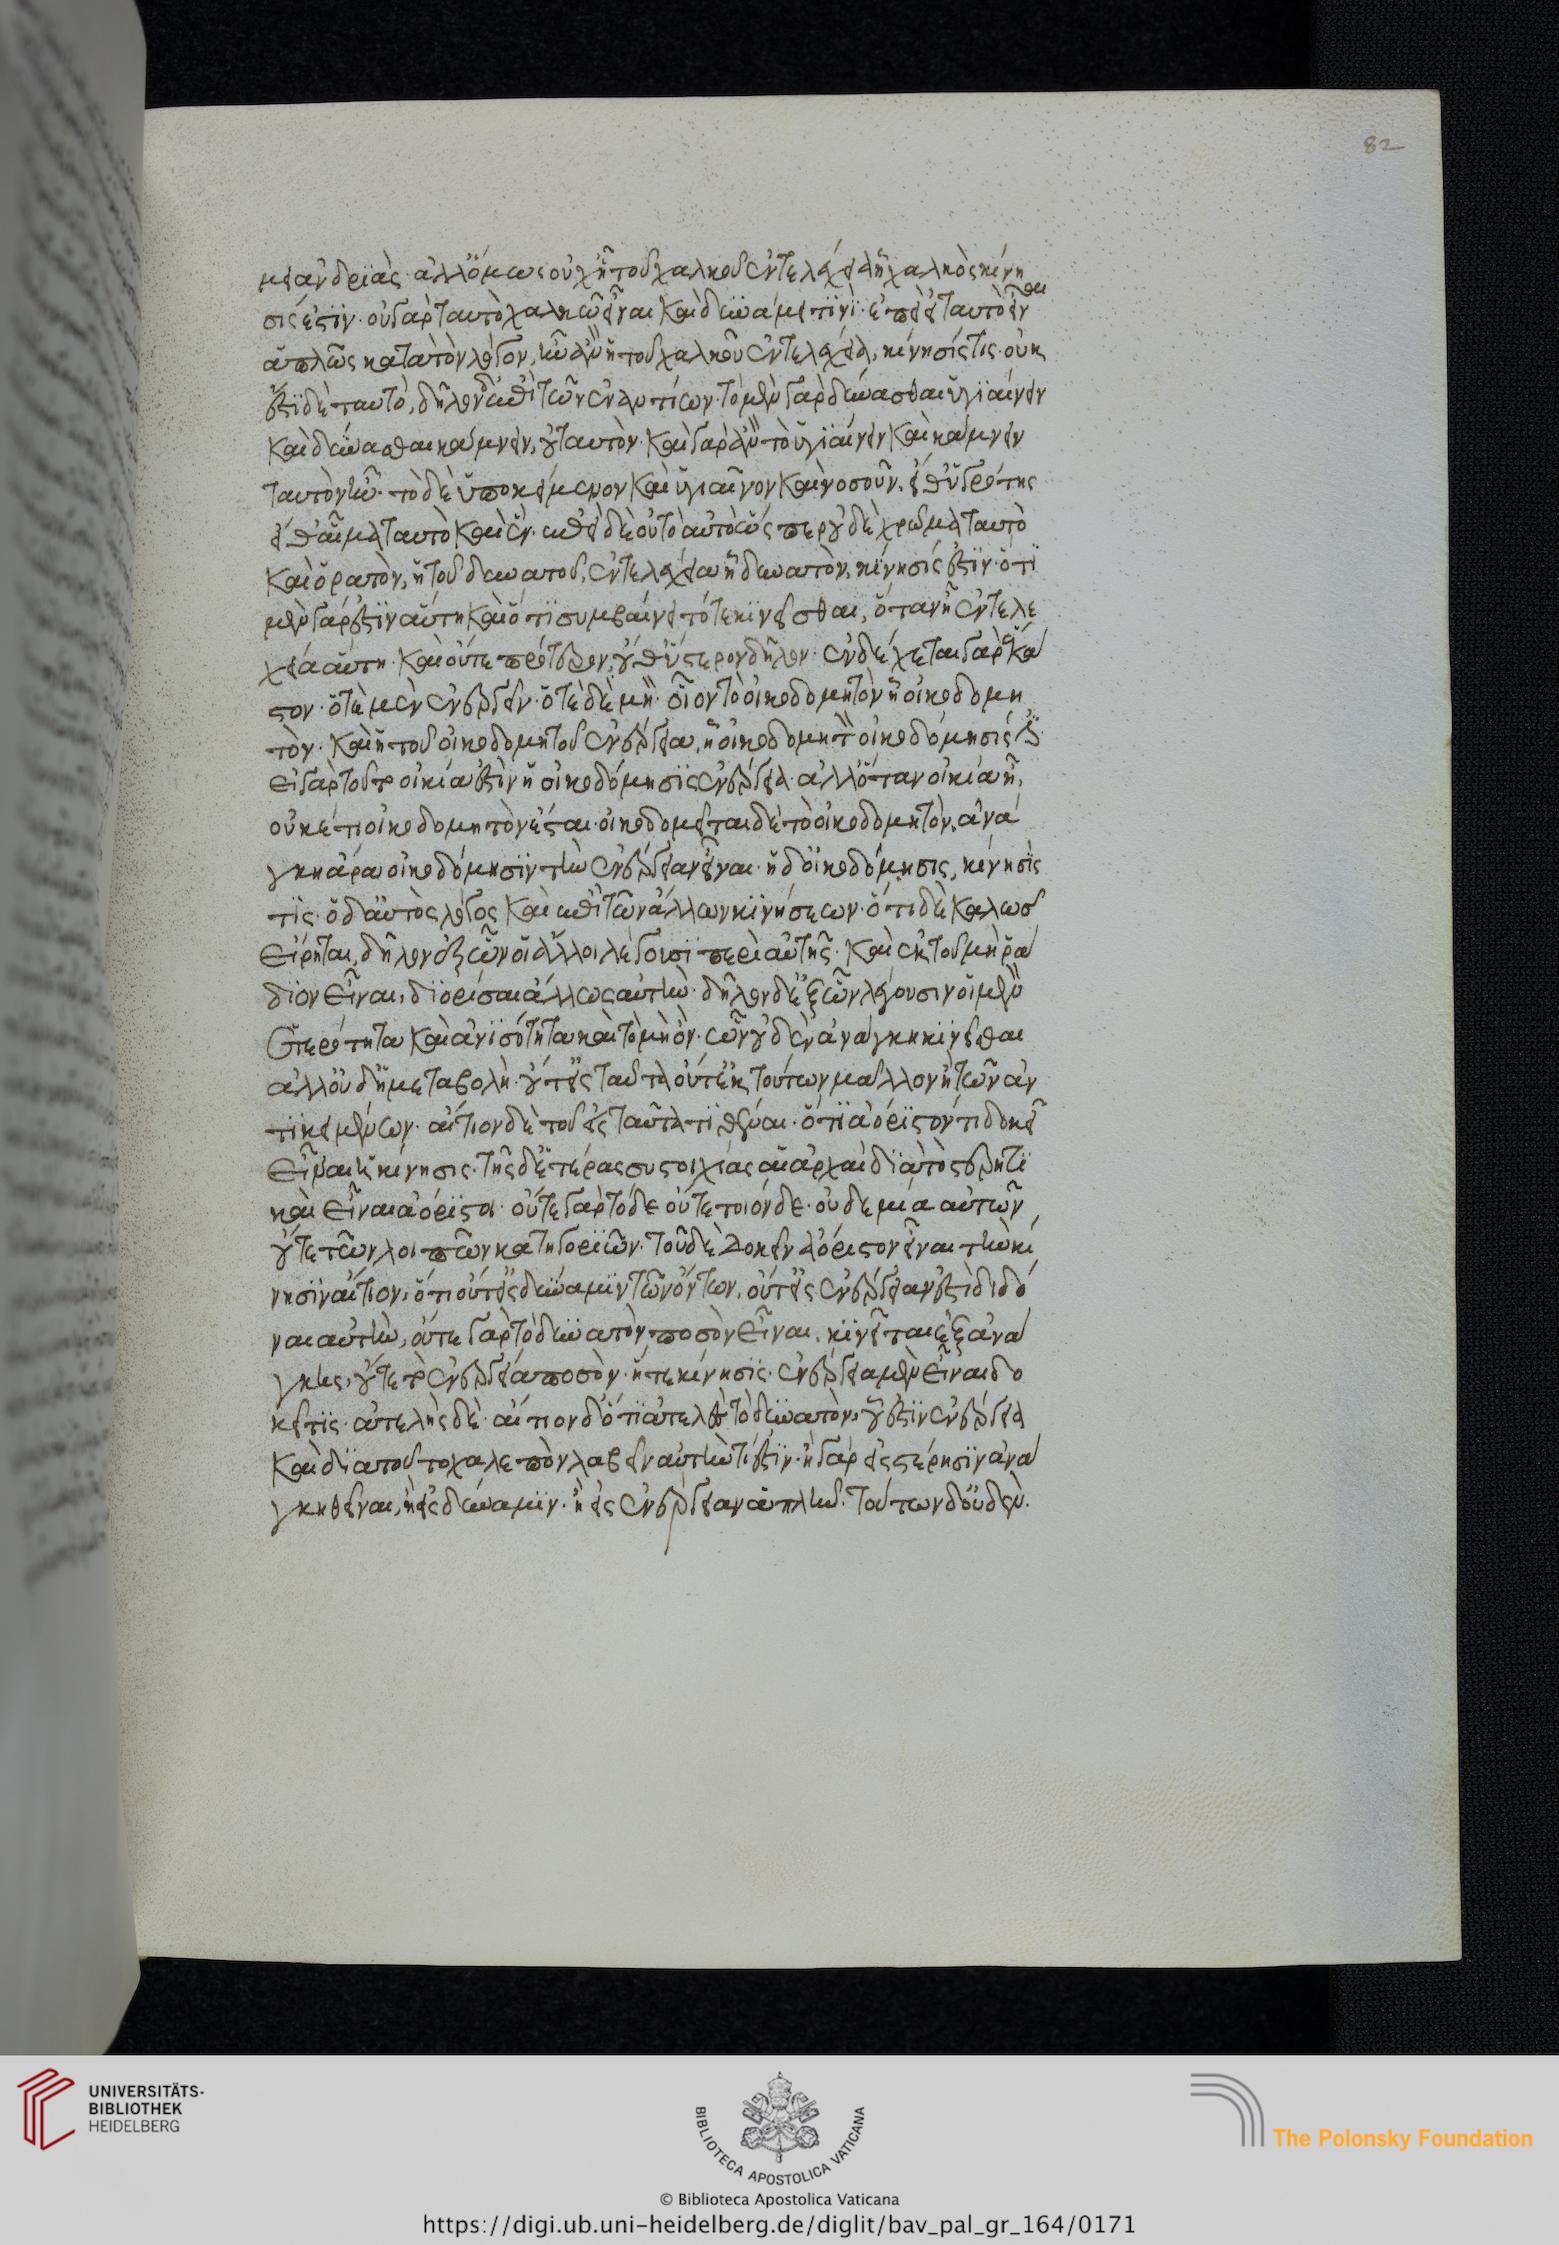 82
μει ἀνδριὰς· ἀλλ' ὅμως οὐχ ἡ τοῦ χαλκοῦ ἐντελέχεια ᾗ χαλκὸς κίνη
σίς ἐστιν· οὐ γὰρ ταυτὸ χαλκῶ εἶναι καὶ δυνάμει τινί· ἐπεὶ εἰ ταυτὸ ἦν
ἁπλῶς κατὰ τὸν λόγον, ἦν ἂν ἡ τοῦ χαλκοῦ ἐντελέχεια, κίνησίς τις· οὐκ
ἔστι δὲ ταυτό, δῆλον δ' ἐπὶ τῶν ἐναντίων· τὸ μὲν γὰρ δύνασθαι ὑγιαίνειν
καὶ δύνασθαι κάμνειν, οὐ ταυτὸν· καὶ γὰρ ἂν τὸ ὑγιαίνειν καὶ κάμνειν
ταυτὸν ἦν· τὸ δὲ ὑποκείμενον καὶ ὑγιαῖνον καὶ νοσοῦν, εἴθ' ὑγρότης
εἴθ' αἷμα ταυτὸ καὶ ἕν· ἐπεὶ δὲ οὐ τὸ αὐτὸ ὥσπερ οὐδὲ χρῶμα ταυτὸ
καὶ ὁρατὸν, ἡ τοῦ δυνατοῦ, ἐντελέχεια ᾗ δυνατὸν, κίνησίς ἐστιν· ὅτι
μὲν γάρ ἐστιν αὕτη καὶ ὅτι συμβαίνει τότε κινεῖσθαι, ὅταν ᾖ ἐντελέ
χεια αὕτη· καὶ οὔτε πρότερον, οὔθ' ὕστερον δῆλον· ἐνδέχεται γὰρ ἕκα
στον· ὁτὲ μὲν ἐνεργεῖν· ὁτὲ δὲ μή· οἷον τὸ οἰκοδομητὸν ᾗ οἰκοδομη
τόν· καὶ ἡ τοῦ οἰκοδομητοῦ ἐνέργεια, ᾗ οἰκοδομητὸν οἰκοδόμησίς ἐστιν·
εἰ γὰρ τοῦτο οἰκία ἐστὶν ἡ οἰκοδόμησις ἐνέργεια· ἀλλ' ὅταν οἰκία ᾖ,
οὐκέτι οἰκοδομητὸν ἔσται· οἰκοδομεῖται δὲ τὸ οἰκοδομητόν, ἀνά
γκη ἄρα οἰκοδόμησιν τὴν ἐνέργειαν εἶναι· ἡ δ' οἰκοδόμησις, κίνησίς
τις· ὁ δ' αὐτὸς λόγος καὶ ἐπὶ τῶν ἄλλων κινήσεων· ὅτι δὲ καλῶς
εἴρηται, δῆλον ἐξ ὧν οἱ ἄλλοι λέγουσι περὶ αὐτῆς· καὶ ἐκ τοῦ μὴ ῥά
διον εἶναι, διορίσαι ἄλλως αὐτὴν· δῆλον δὲ ἐξ ὧν λέγουσιν οἱ μὲν
ἑτερότητα καὶ ἀνισότητα καὶ τὸ μὴ ὄν· ὧν οὐδὲν ἀνάγκη κινεῖσθαι
ἀλλ' οὐδ' ἡ μεταβολὴ οὔτ' εἰς ταῦτα οὔτ' ἐκ τούτων μᾶλλον ἢ τῶν ἀν
τικειμένων· αἴτιον δὲ τοῦ εἰς ταῦτα τιθέναι· ὅτι ἀόριστόν τι δοκεῖ
εἶναι ἡ κίνησις· τῆς δ' ἑτέρας συστοιχίας αἱ ἀρχαὶ διὰ τὸ στερητι
καὶ εἶναι ἀόριστοι· οὔτε γὰρ τόδε οὔτε τοιόνδε· οὐδεμία αὐτῶν
οὔτε τῶν λοιπῶν κατηγοριῶν· τοῦ δὲ δοκεῖν ἀόριστον εἶναι τὴν κί
νησιν αἴτιον, ὅτι οὔτ' εἰς δύναμιν τῶν ὄντων, οὔτ' εἰς ἐνέργειαν ἔστι διδό
ναι αὐτὴν, οὔτε γὰρ τὸ δυνατὸν ποσὸν εἶναι, κινεῖται ἐξ ἀνά
γκης, οὔτε τὸ ἐνεργείᾳ ποσὸν· ἥ τε κίνησις· ἐνέργεια μὲν εἶναι δο
κεῖ τις· ἀτελὴς δὲ· αἴτιον δ' ὅτι ἀτελὲς τὸ δυνατὸν, οὗ ἐστὶν ἐνέργεια
καὶ διὰ τοῦτο χαλεπὸν λαβεῖν αὐτὴν τί ἐστιν· ἢ γὰρ εἰς στέρησιν ἀνά
γκη θεῖναι, ἢ εἰς δύναμιν· ἢ εἰς ἐνέργειαν ἁπλῆν· τούτων δ' οὐδὲν
UNIVERSITÄTS-
BIBLIOTHEK
HEIDELBERG
BIBLIOTECA APOSTOLICA VATICANA
The Polonsky Foundation
© Biblioteca Apostolica Vaticana
https://digi.ub.uni-heidelberg.de/diglit/bav_pal_gr_164/0171